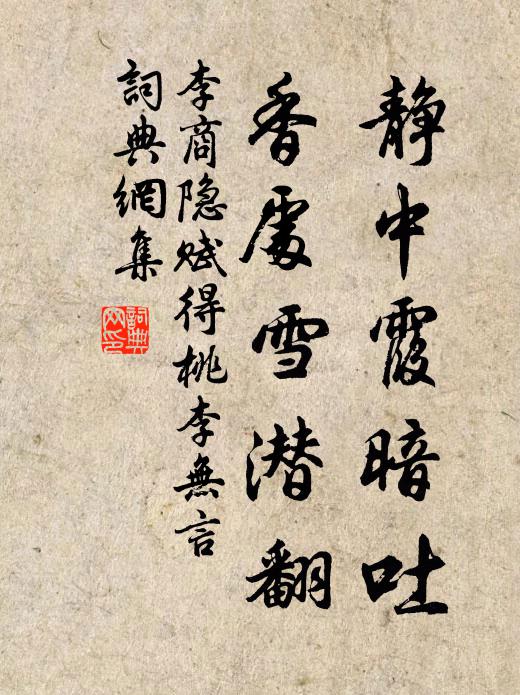 静中霞暗吐
香處雪潜翻
李商隐赋得桃李無言
詞典網集
詞典
网印